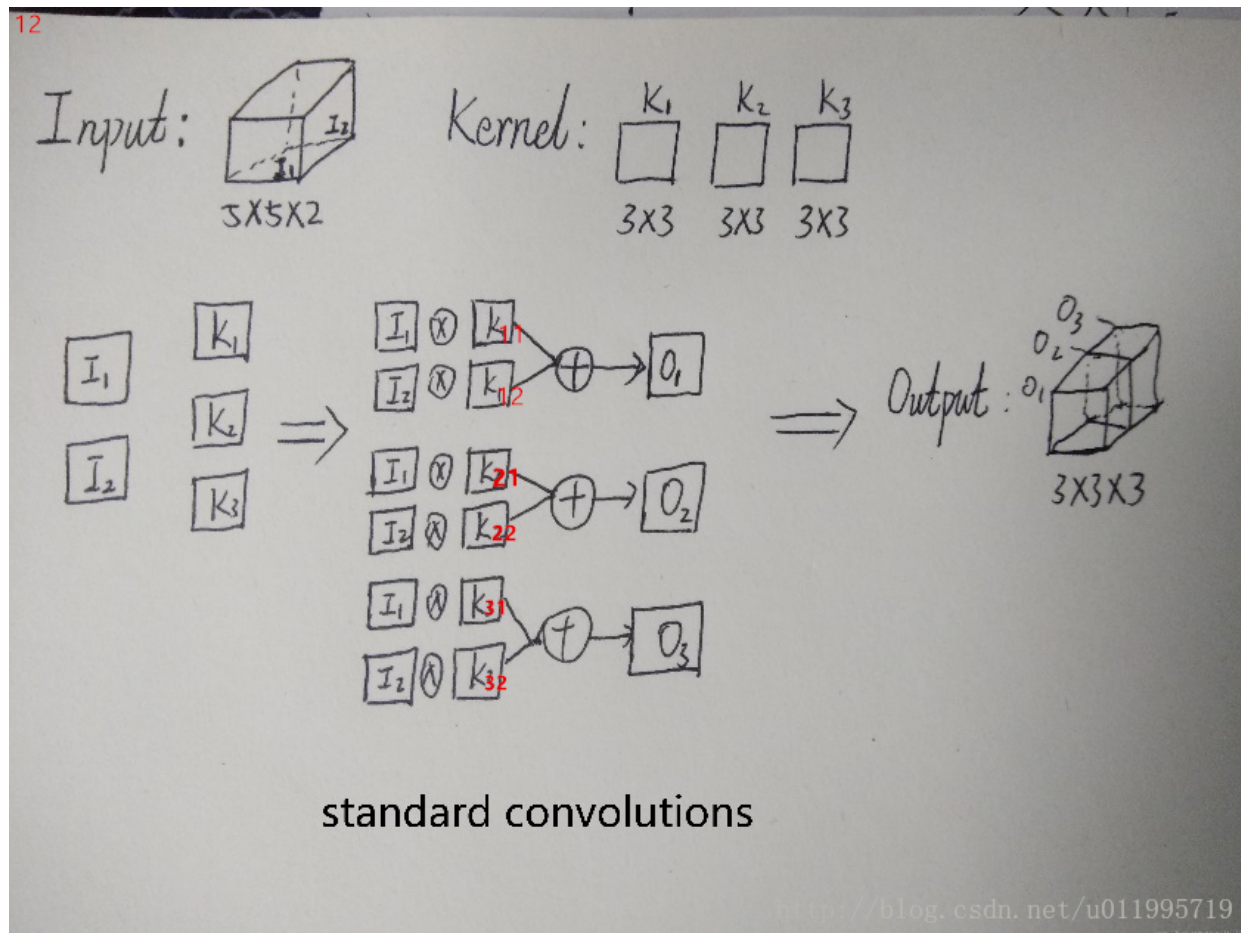 12
Input: I₁ I₂
5X5X2
Kernel: K₁ K₂ K₃
3X3 3X3 3X3
I₁
I₂
K₁
K₂
K₃
⇒
I₁ ⊗ K₁₁
I₂ ⊗ K₁₂
⊕ → O₁
I₁ ⊗ K₂₁
I₂ ⊗ K₂₂
⊕ → O₂
I₁ ⊗ K₃₁
I₂ ⊗ K₃₂
⊕ → O₃
⇒
Output: O₁ O₂ O₃
3X3X3
standard convolutions
http://blog.csdn.net/u011995719